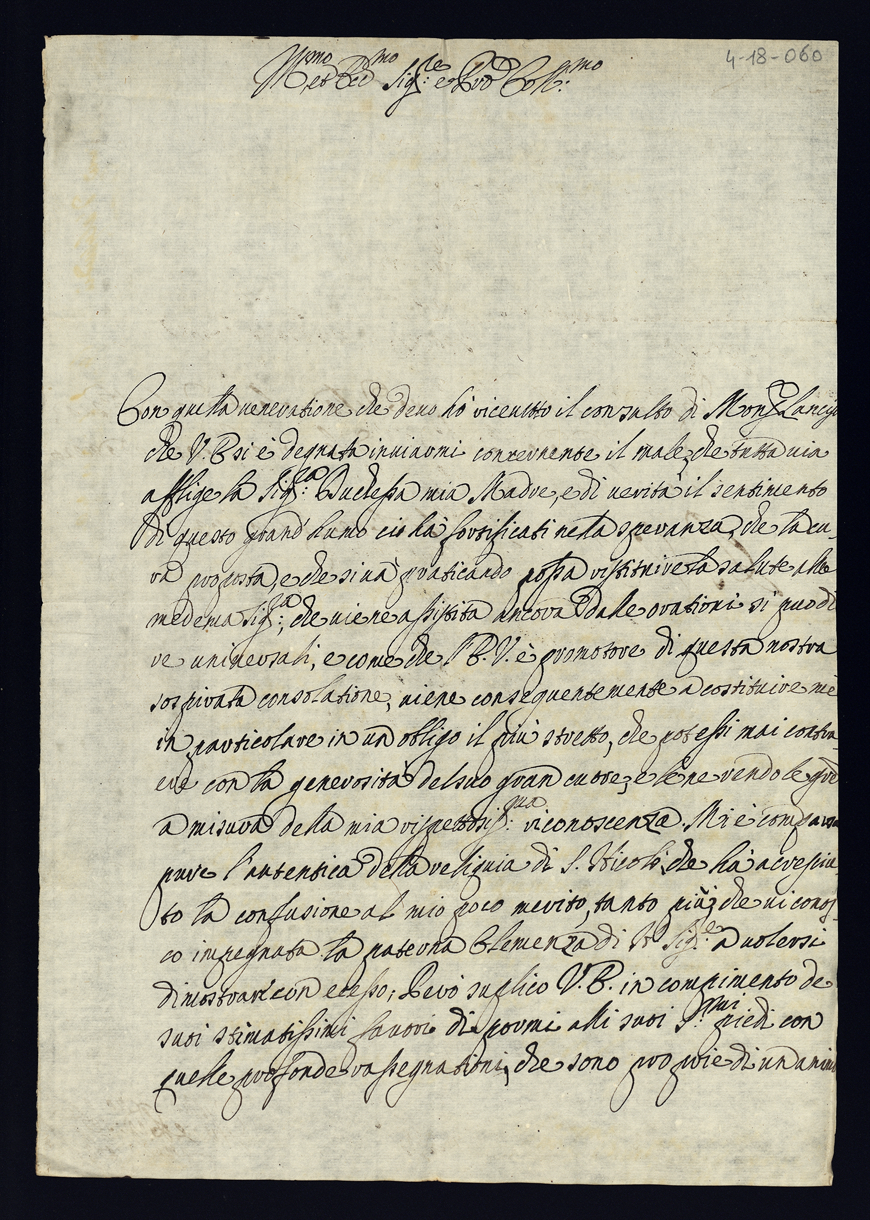 4-18-060
Ill.mo et Ecc.mo Sig.re e Pro.n Coll.mo
Con quella veneratione che devo hò riceuuto il consulto di Mons.r Lancisi
che V. E. si è degnata inviarmi concernente il male, che tutta uia
afflige la Sig.ra Duchessa mia Madre, e di uerità il sentimento
di questo grand'humo ciò hà fortificati nella speranza, che la cu-
ra proposta, e che si uà praticando possa ristituire la salute alla
medema Sig.ra, che uiene assistita ancora dalle orationi si può di
re uniuersali, e come che l'E. V. è promotore di questa nostra
sospirata consolatione, uiene conseguentemente a costituire me
in particolare in un obligo il più stretto, che potessi mai contra-
ere con la generosità del suo gran cuore, e le ne rendo le gra
a misura della mia rispettosis.ma riconoscenza. Mi è comparsa
pure l'autentica della reliquia di S. Nicolò, che hà acresciu
to la confusione al mio poco merito, tanto più, che ui conos-
co impegnata la paterna Clemenza di N. Sig.re a uolersi
dimostrar con ecesso; Però suplico V. E. in compimento de
suoi stimatissimi fauori di pormi alli suoi S.mi piedi con
quelle profonde rassegnationi, che sono proprie di un anim